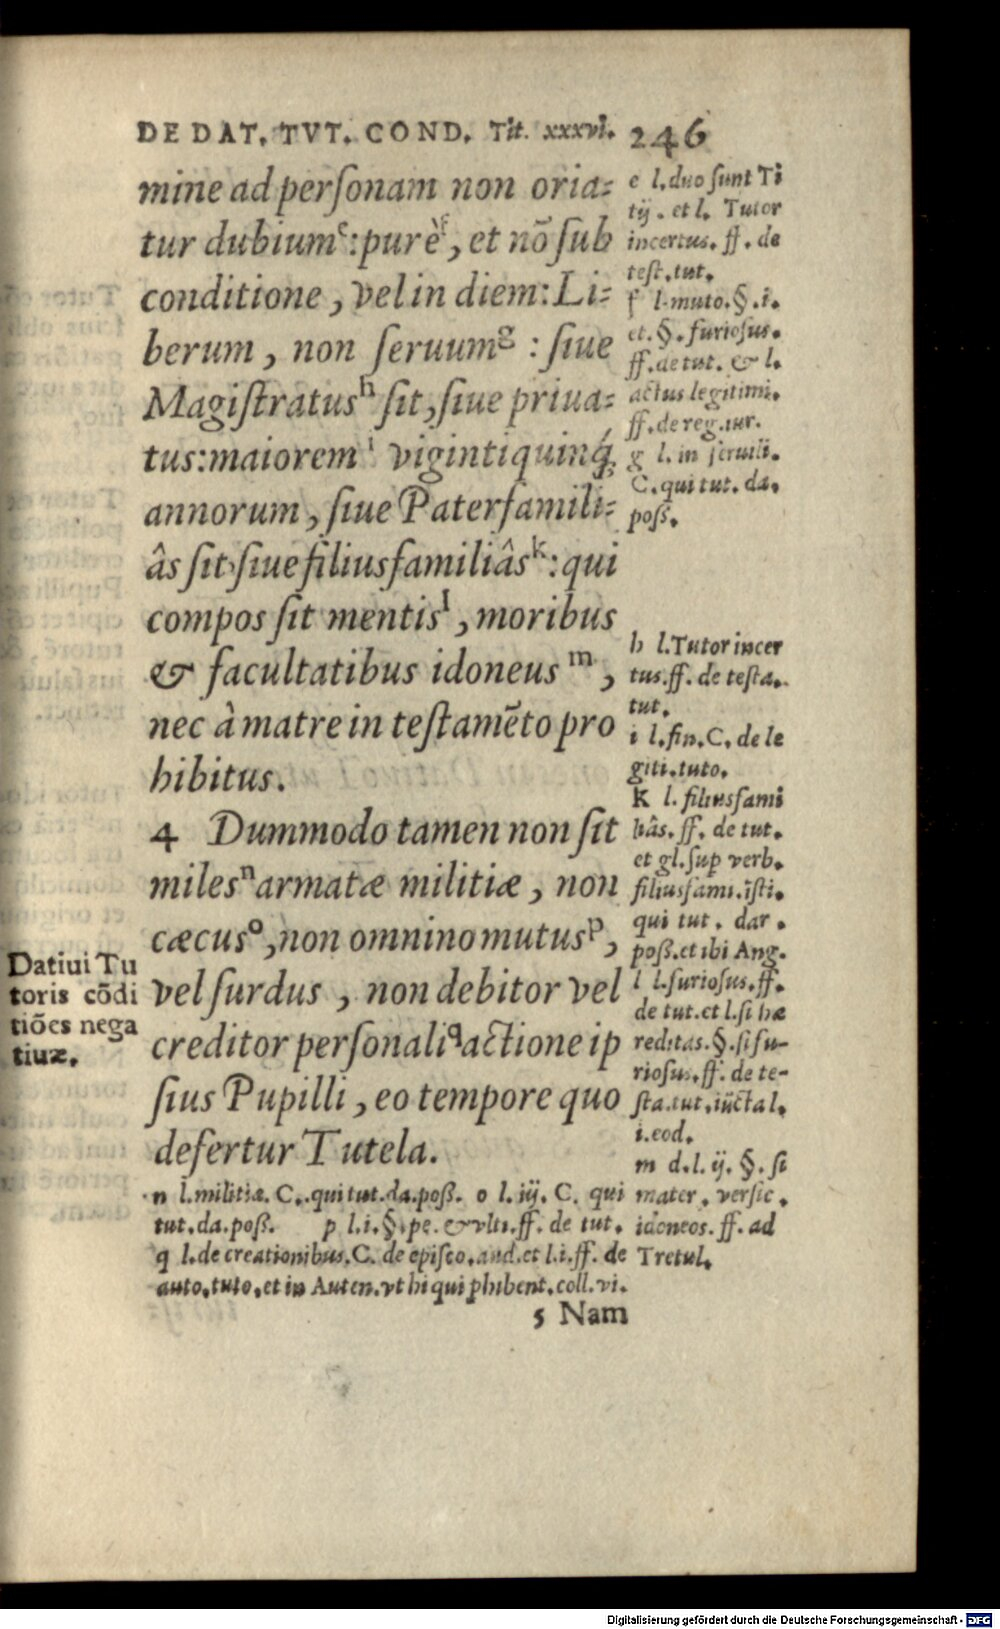 DE DAT. TVT. COND. Tit. xxxvi. 246
mine ad perſonam non oria=
tur dubiumᵉ: purèᶠ, et nō ſub
conditione, vel in diem: Li=
berum, non ſeruumᵍ : ſiue
Magiſtratusʰ ſit, ſiue priua=
tus: maioremⁱ vigintiquinq́;
annorum, ſiue Paterfamili=
âs ſit, ſiue filiusfamiliâsᵏ: qui
compos ſit mentisˡ, moribus
& facultatibus idoneusᵐ,
nec à matre in teſtamēto pro
hibitus.
4 Dummodo tamen non ſit
milesⁿ armatæ militiæ, non
cæcusᵒ, non omnino mutusᵖ,
vel ſurdus, non debitor vel
creditor perſonali𐞥 actione ip
ſius Pupilli, eo tempore quo
defertur Tutela.
Datiui Tu
toris cōdi
tiōes nega
tiuæ.
e l. duo ſunt Ti
tij. et l. Tutor
incertus. ff. de
teſt. tut.
f l. muto. §. i.
et. §. furioſus.
ff. de tut. & l.
actus legitimi.
ff. de reg. iur.
g l. in ſeruili.
C. qui tut. da.
poſſ.
h l. Tutor incer
tus. ff. de teſta.
tut.
i l. fin. C. de le
giti. tuto.
K l. filiusfami
liâs. ff. de tut.
et gl. ſup verb.
filiusfami. iſti.
qui tut. dar.
poſſ. et ibi Ang.
l l. furioſus. ff.
de tut. et l. ſi hæ
reditas. §. ſi fu-
rioſus. ff. de te-
ſta. tut. iūcta l.
i. eod.
m d. l. ij. §. ſi
mater. verſic.
idoneos. ff. ad
Tretul.
n l. militiæ. C. qui tut. da. poſſ. o l. iij. C. qui
tut. da. poſſ. p l. i. §. pe. & vlti. ff. de tut.
q l. de creationibus. C. de epiſco. aud. et l. i. ff. de
auto. tuto. et in Auten. vt hi qui phibent. coll. vi.
5 Nam
Digitalisierung gefördert durch die Deutsche Forschungsgemeinschaft - DFG